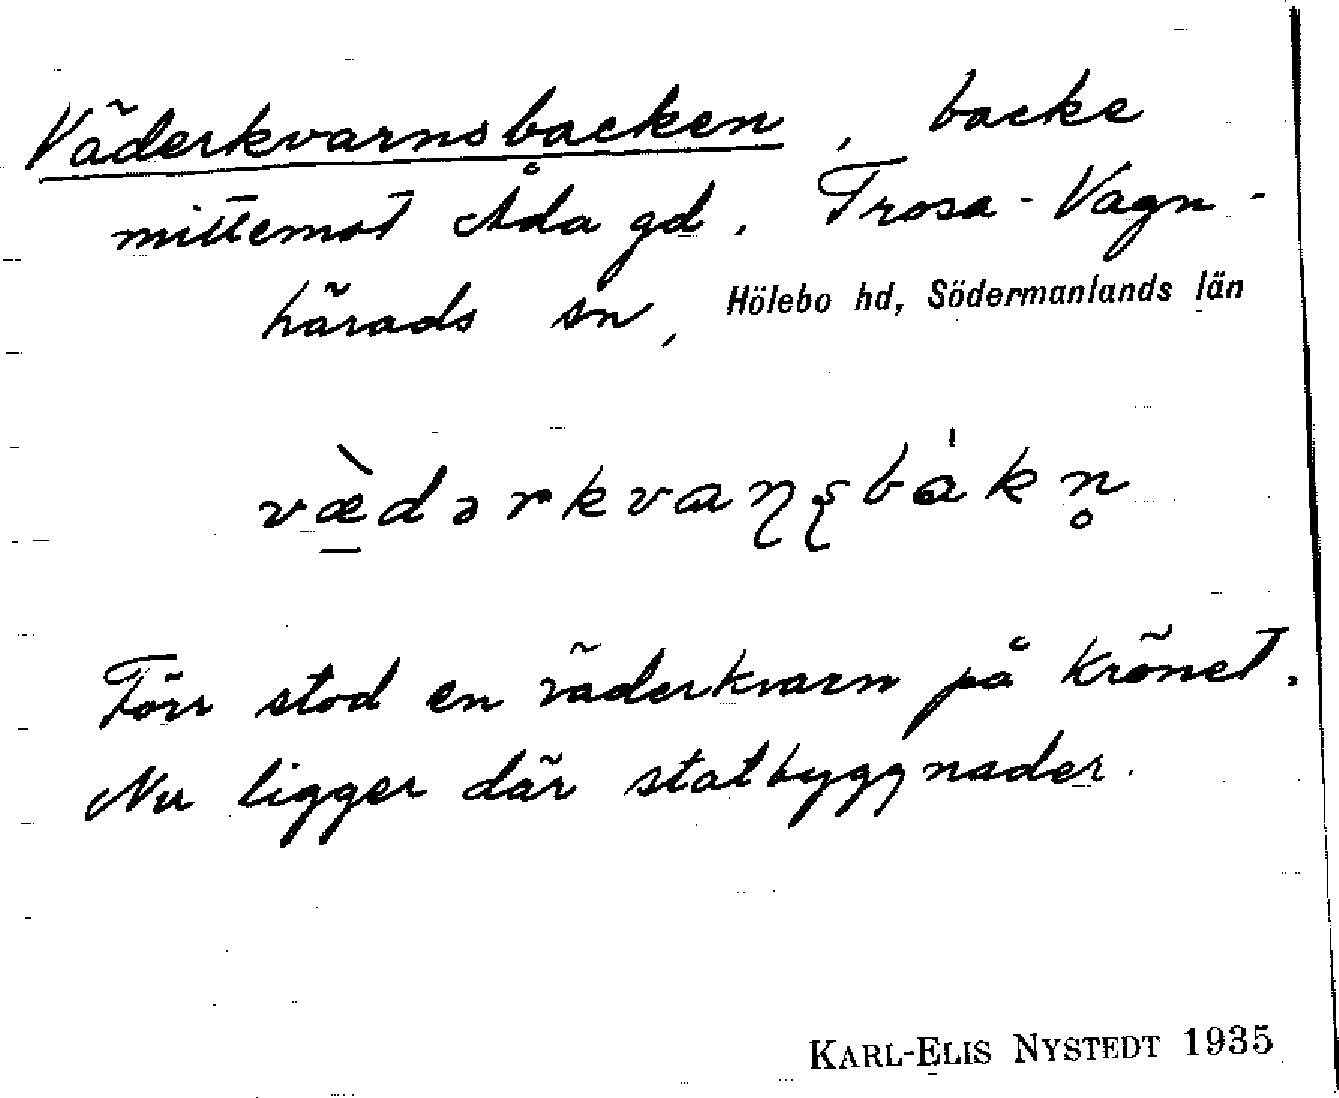 Väderkvarnsbacken, backe
mittemot Åda gd. Trosa-Vagn-
härads sn, Hölebo hd, Södermanlands län
væ̠̀dərkvaɳʂbàkn̥
Förr stod en väderkvarn på krönet.
Nu ligger där statbyggnader.
KARL-ELIS NYSTEDT 1935